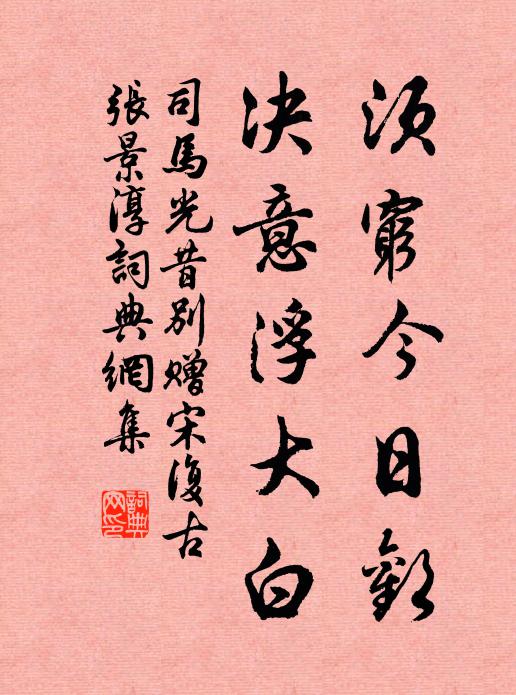 须窮今日歡
決意浮大白
司馬光昔別赠宋復古
張景淳詞典網集
詞典網印